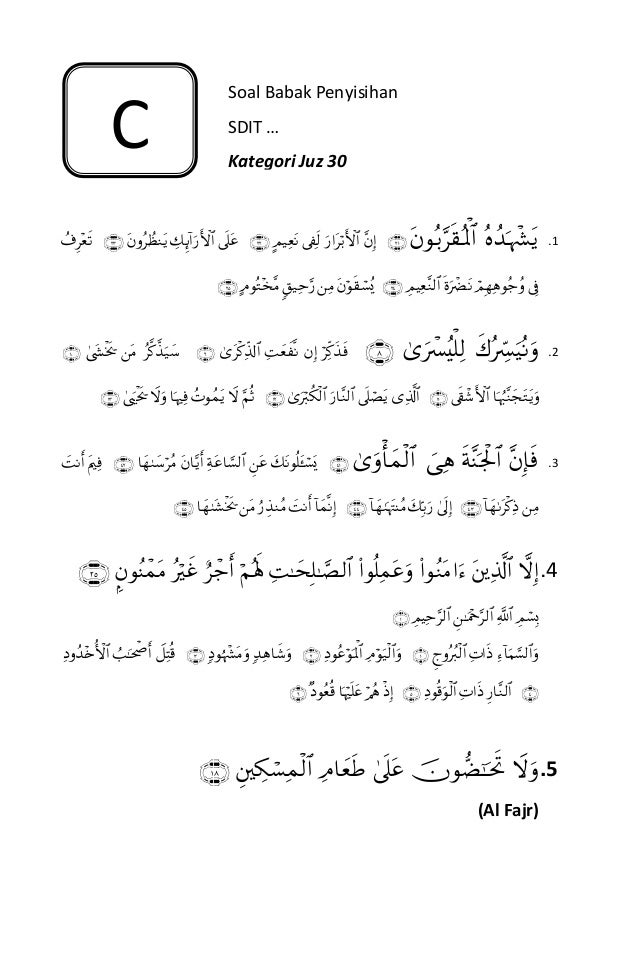 C
Soal Babak Penyisihan
SDIT ...
Kategori Juz 30
1. يَشْهَدُهُ ٱلْمُقَرَّبُونَ ﴿٢١﴾ إِنَّ ٱلْأَبْرَارَ لَفِى نَعِيمٍ ﴿٢٢﴾ عَلَى ٱلْأَرَآئِكِ يَنظُرُونَ ﴿٢٣﴾ تَعْرِفُ
فِى وُجُوهِهِمْ نَضْرَةَ ٱلنَّعِيمِ ﴿٢٤﴾ يُسْقَوْنَ مِن رَّحِيقٍ مَّخْتُومٍ ﴿٢٥﴾
2. وَنُيَسِّرُكَ لِلْيُسْرَىٰ ﴿٨﴾ فَذَكِّرْ إِن نَّفَعَتِ ٱلذِّكْرَىٰ ﴿٩﴾ سَيَذَّكَّرُ مَن يَخْشَىٰ ﴿١٠﴾
وَيَتَجَنَّبُهَا ٱلْأَشْقَى ﴿١١﴾ ٱلَّذِى يَصْلَى ٱلنَّارَ ٱلْكُبْرَىٰ ﴿١٢﴾ ثُمَّ لَا يَمُوتُ فِيهَا وَلَا يَحْيَىٰ ﴿١٣﴾
3. فَإِنَّ ٱلْجَنَّةَ هِىَ ٱلْمَأْوَىٰ ﴿٤١﴾ يَسْـَٔلُونَكَ عَنِ ٱلسَّاعَةِ أَيَّانَ مُرْسَىٰهَا ﴿٤٢﴾ فِيمَ أَنتَ
مِن ذِكْرَىٰهَآ ﴿٤٣﴾ إِلَىٰ رَبِّكَ مُنتَهَىٰهَآ ﴿٤٤﴾ إِنَّمَآ أَنتَ مُنذِرُ مَن يَخْشَىٰهَا ﴿٤٥﴾
4. إِلَّا ٱلَّذِينَ ءَامَنُوا۟ وَعَمِلُوا۟ ٱلصَّـٰلِحَـٰتِ لَهُمْ أَجْرٌ غَيْرُ مَمْنُونٍۭ ﴿٢٥﴾
بِسْمِ ٱللَّهِ ٱلرَّحْمَـٰنِ ٱلرَّحِيمِ ﴿١﴾
وَٱلسَّمَآءِ ذَاتِ ٱلْبُرُوجِ ﴿١﴾ وَٱلْيَوْمِ ٱلْمَوْعُودِ ﴿٢﴾ وَشَاهِدٍ وَمَشْهُودٍ ﴿٣﴾ قُتِلَ أَصْحَـٰبُ ٱلْأُخْدُودِ
﴿٤﴾ ٱلنَّارِ ذَاتِ ٱلْوَقُودِ ﴿٥﴾ إِذْ هُمْ عَلَيْهَا قُعُودٌ ﴿٦﴾
5. وَلَا تَحَـٰٓضُّونَ عَلَىٰ طَعَامِ ٱلْمِسْكِينِ ﴿١٨﴾
(Al Fajr)